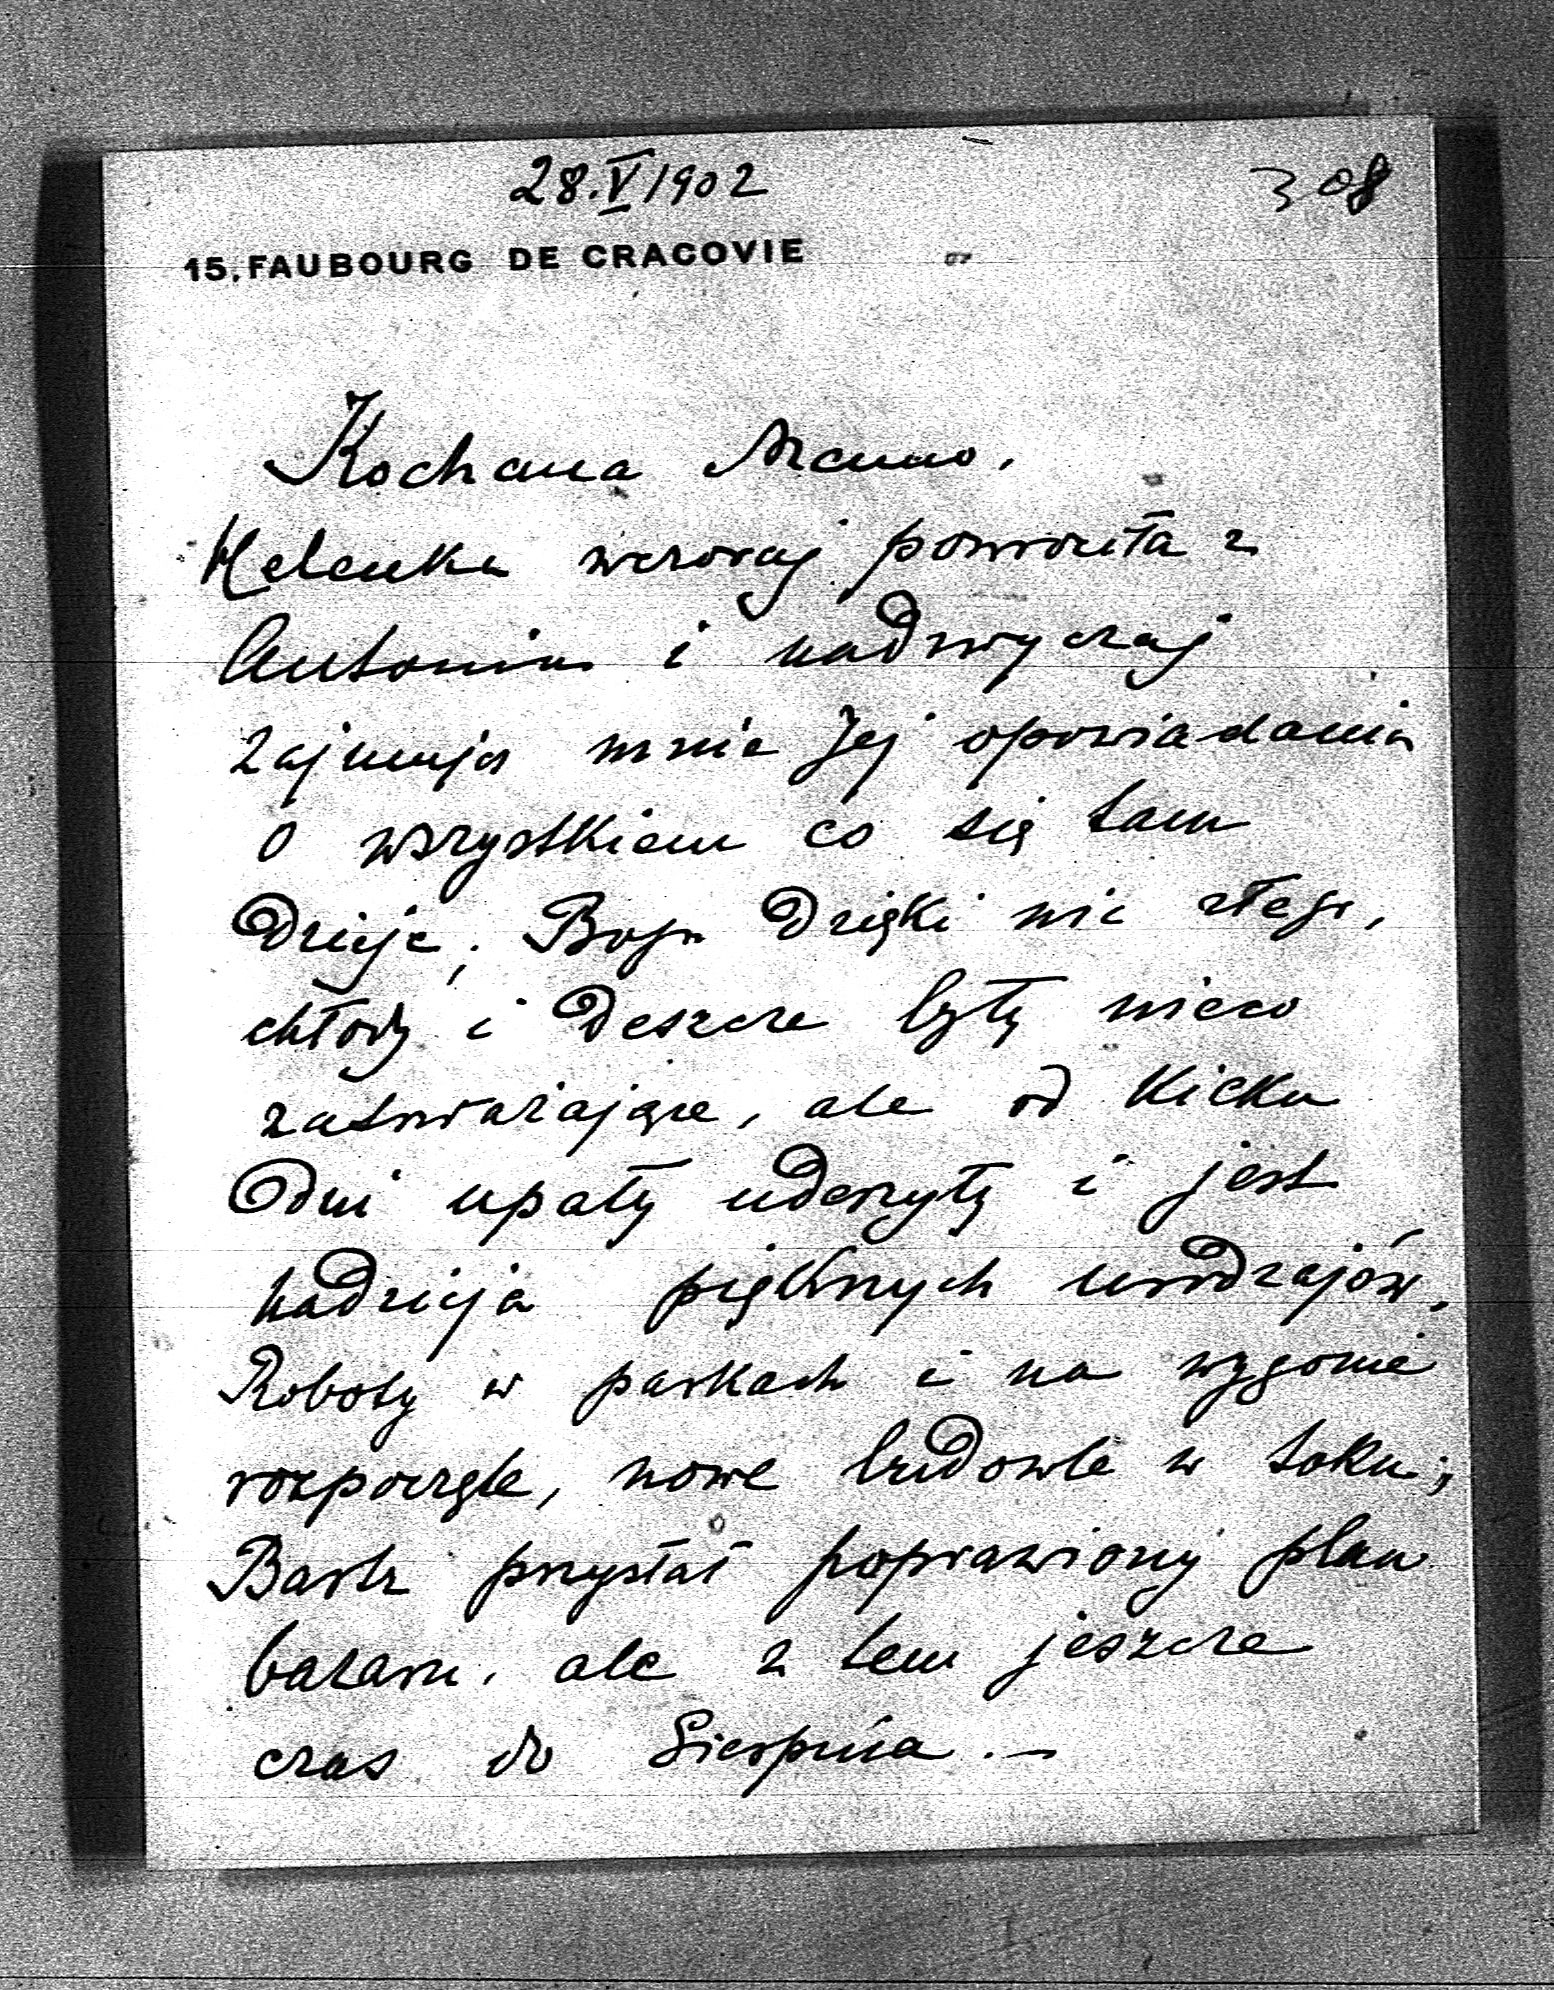 28.V 1902
308
15, FAUBOURG DE CRACOVIE
Kochana Mamo.
Helenka wczoraj powróciła z
Antonin i nadzwyczaj
zajmują mnie Jej opowiadania
o wszystkiem co się tam
Dzieje; Bogu Dzięki nic złego,
chłody i Deszcze były nieco
zatrważające, ale od kilku
Dni upały uderzyły i jest
nadzieja pięknych urodzajów.
Roboty w parkach i na wygonie
rozpoczęte, nowe budowle w toku;
Bartz przysłał poprawiony plan
bazaru, ale z tem jeszcze
czas do Sierpnia. —